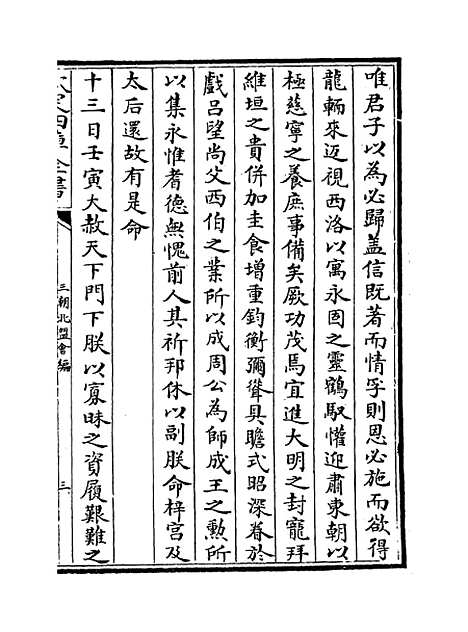 唯君子以為必歸盖信既著而情孚則恩必施而欲得
龍輀來迈視西洛以寓永固之靈鶴馭懽迎肅東朝以
極慈寧之養庶事備矣厥功茂焉宜進大明之封寵拜
維垣之貴併加圭食增重鈞衡彌聳具瞻式昭深眷於
戲吕望尚父西伯之業所以成周公為師成王之勲所
以集永惟耆德無愧前人其祈邦休以副朕命梓宫及
太后還故有是命
十三日壬寅大赦天下門下朕以寡昧之資履艱難之
欽定四庫全書
三朝北盟會編
三